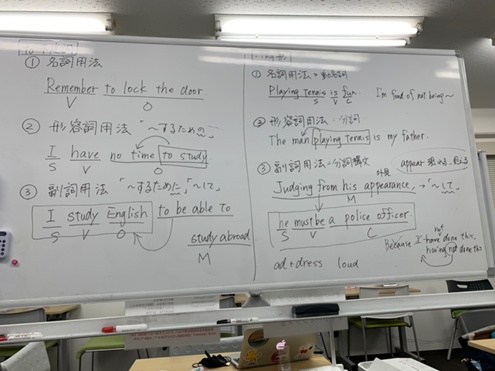 ① 名詞用法
Remember to lock the door
V O
② 形容詞用法 「~するための」
I have no time to study
S V O
③ 副詞用法 「~するために」「~して」
I study English to be able to
S V O
study abroad
M
① 名詞用法 動名詞
Playing tennis is fun. I'm fond of not being~
S V C
② 形容詞用法 分詞
The man playing tennis is my father.
③ 副詞用法 分詞構文
appear
外見
Judging from his appearance, → 「~して」
M
he must be a police officer.
S V C
not
Because I have done this,
having not done this
ad + dress loud